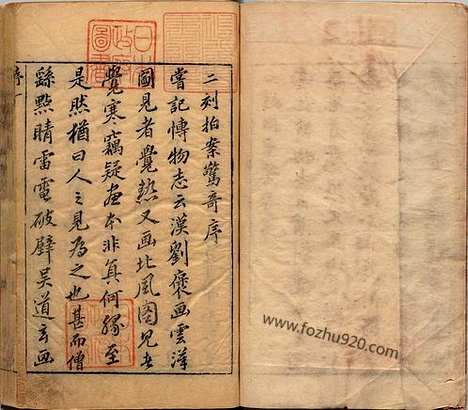 二刻拍案驚奇序
嘗記博物志云漢劉褒画雲漢
圖見者覺熱又画北風圖見者
覺寒竊疑画本非真何縁至
是然猶曰人之見為之也甚而僧
繇點睛雷電破壁吴道玄画
序一
www.fozhu920.com